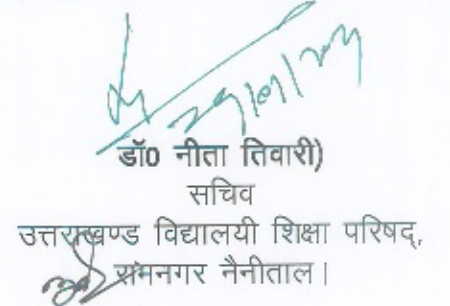 डॉ0 नीता तिवारी)
सचिव
उत्तराखण्ड विद्यालयी शिक्षा परिषद्,
रामनगर नैनीताल।